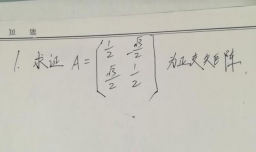 1. 求证 A = \begin{pmatrix} \frac{1}{2} & -\frac{\sqrt{3}}{2} \\ \frac{\sqrt{3}}{2} & \frac{1}{2} \end{pmatrix} 为正交矩阵.